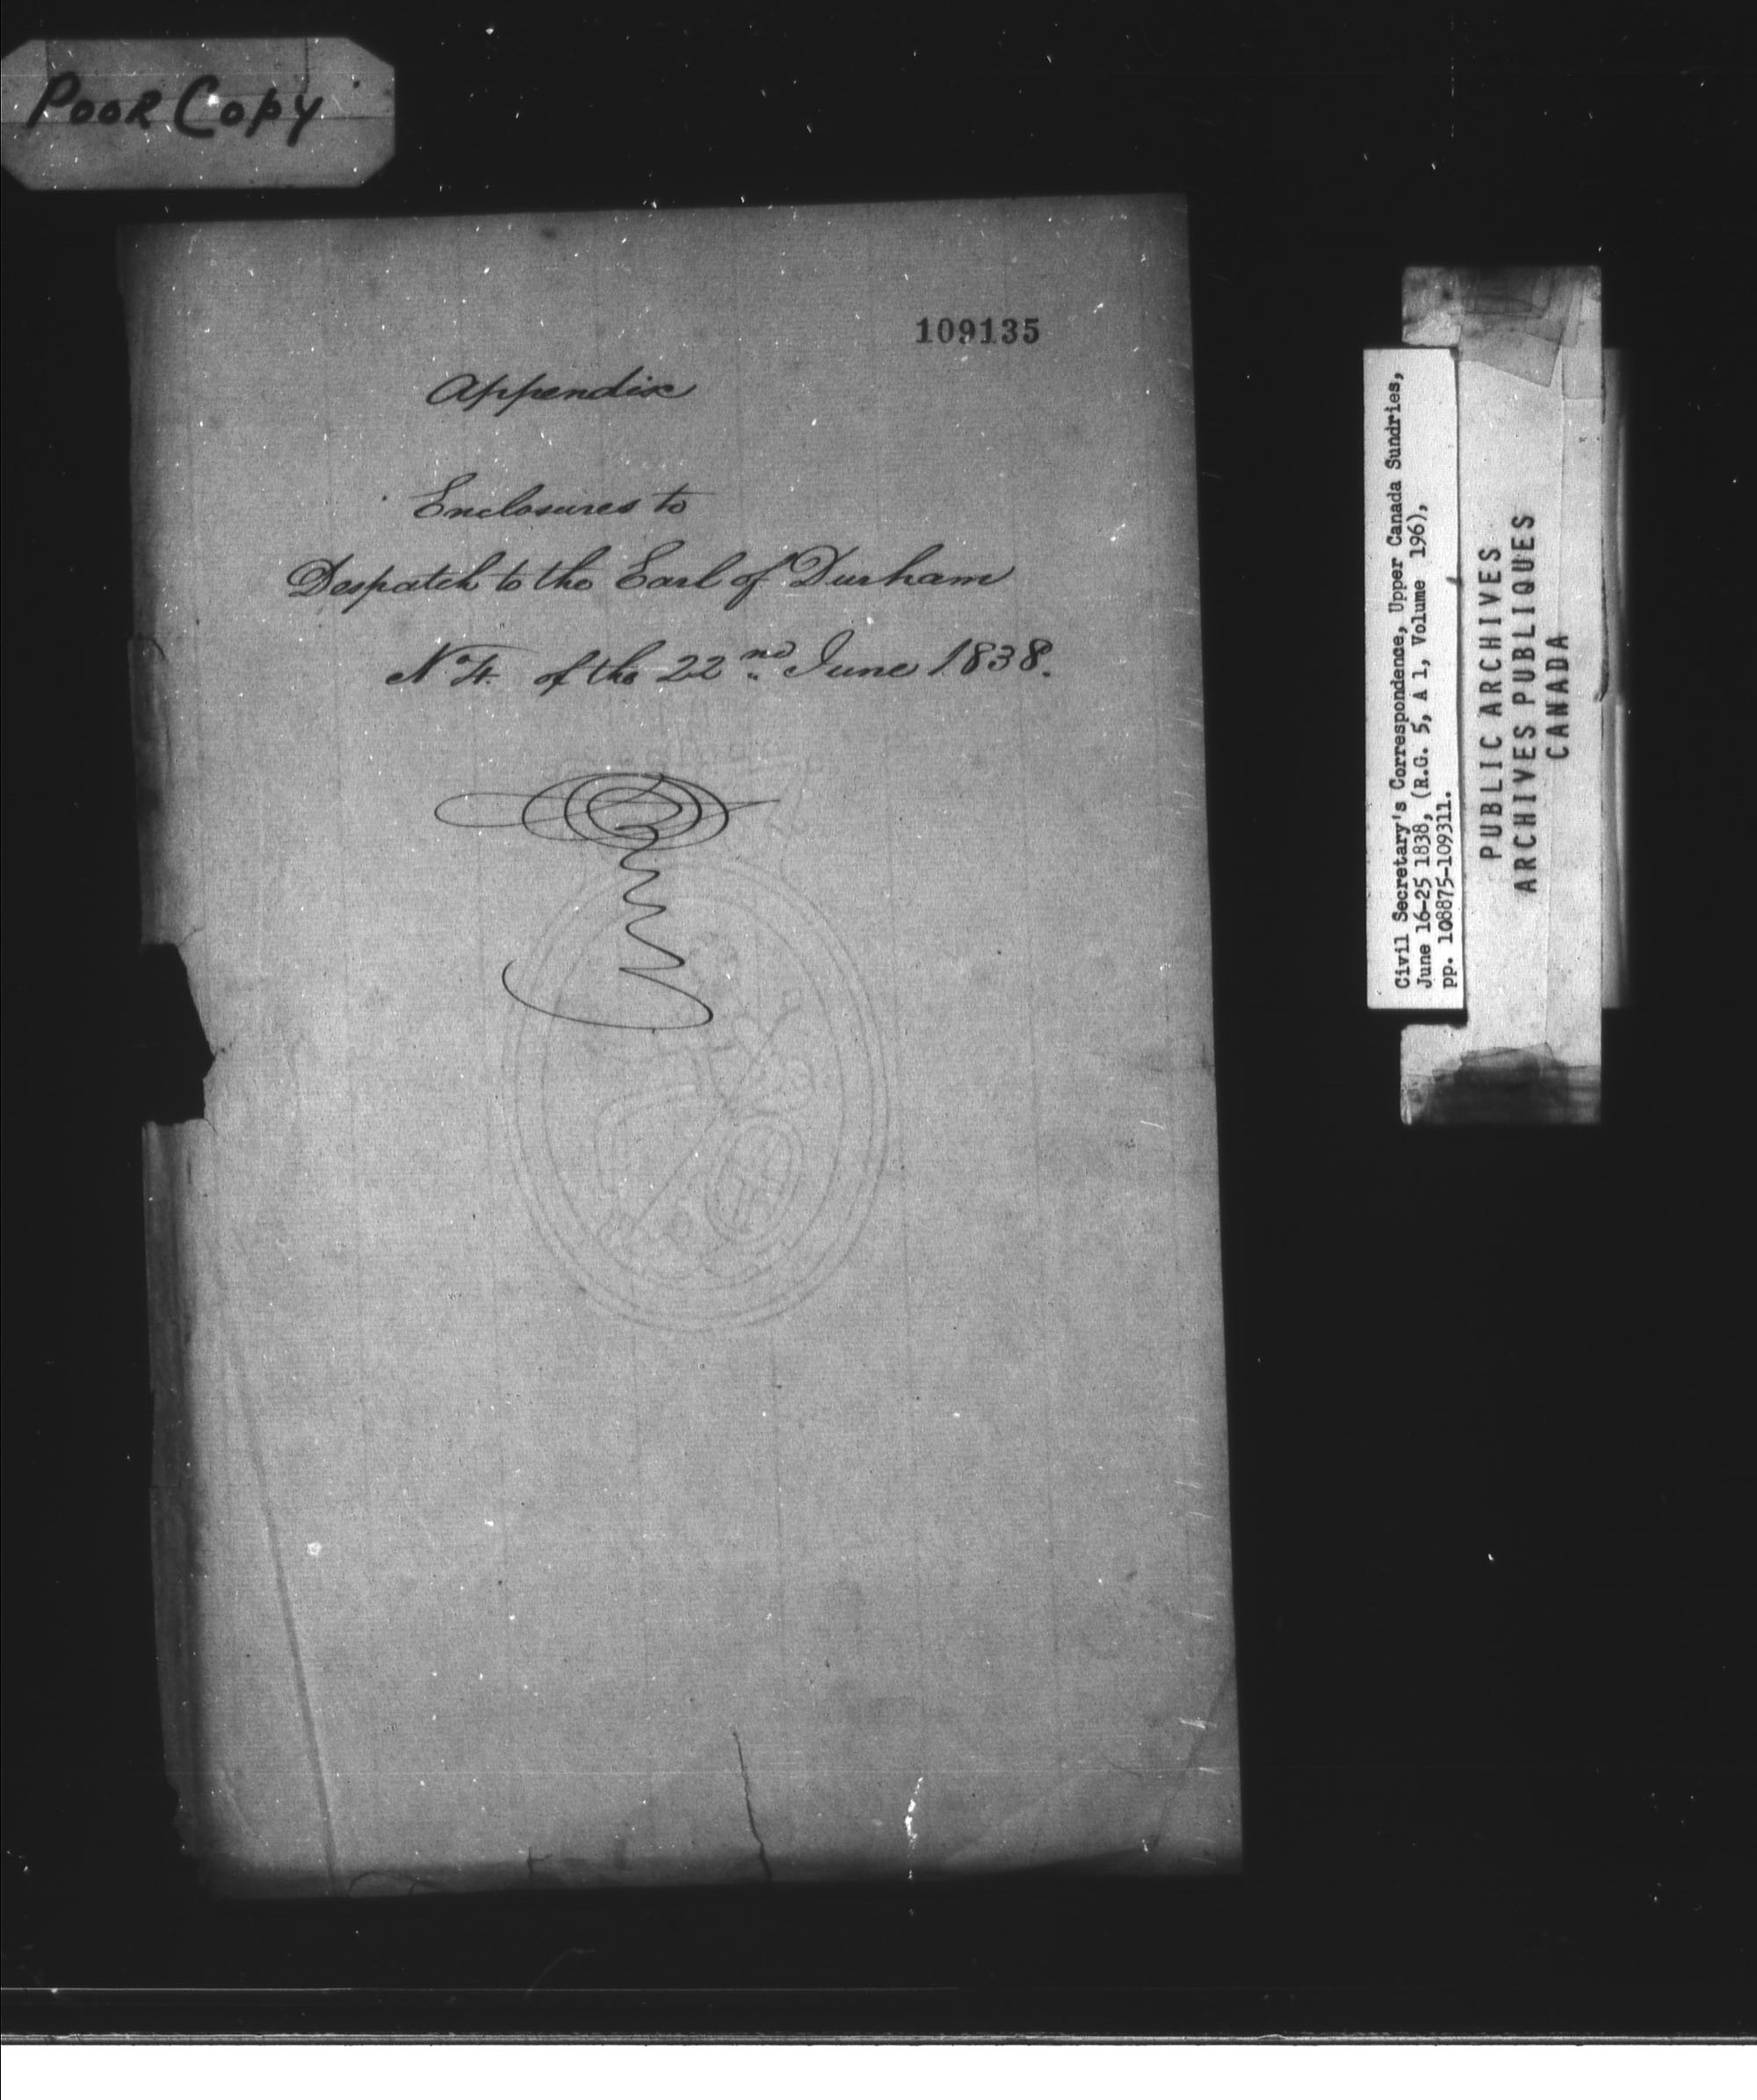 Poor Copy
109135
Appendix
Enclosures to
Despatch to the Earl of Durham
No 4. of the 22nd June 1838.
Civil Secretary's Correspondence, Upper Canada Sundries,
June 16-25 1838, (R.G. 5, A 1, Volume 196),
pp. 108875-109311.
PUBLIC ARCHIVES
ARCHIVES PUBLIQUES
CANADA